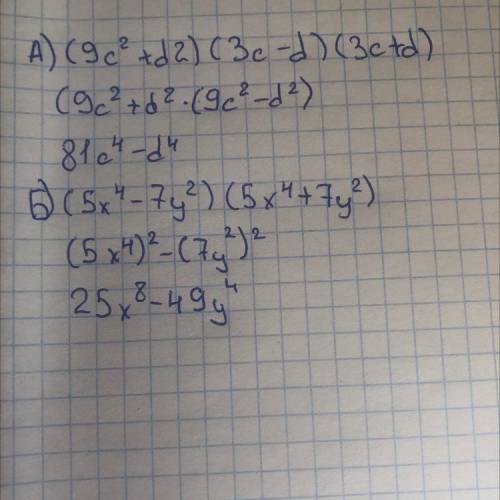 А) (9c² + d2) (3c - d) (3c + d)
(9c² + d² · (9c² - d²)
81c⁴ - d⁴
Б) (5x⁴ - 7y²) (5x⁴ + 7y²)
(5x⁴)² - (7y²)²
25x⁸ - 49y⁴